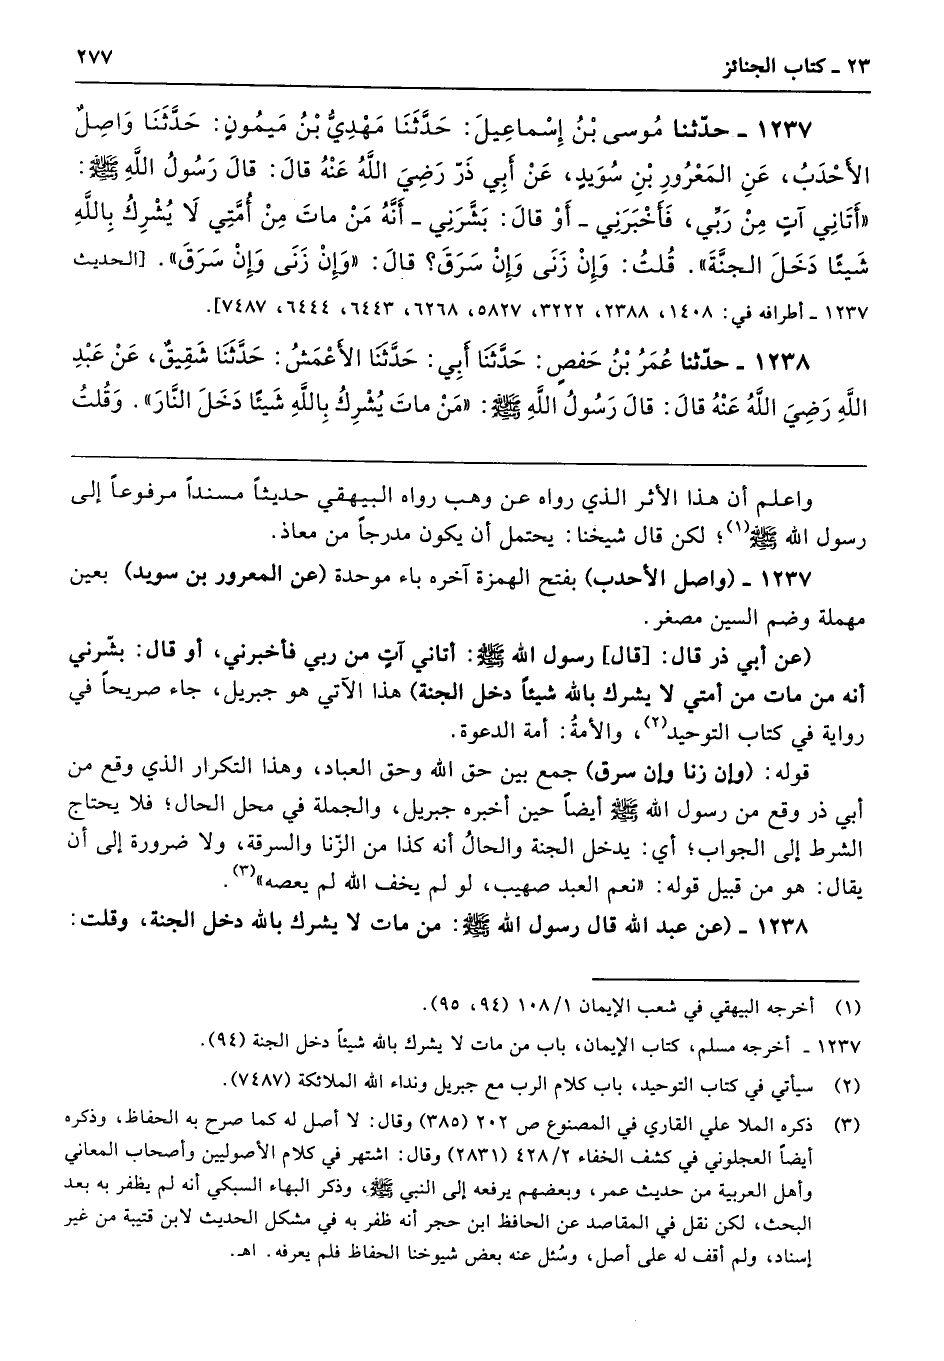 ٢٣ ـ كتاب الجنائز
٢٧٧
١٢٣٧ ـ حدّثنا مُوسى بْنُ إِسْماعِيلَ: حَدَّثَنَا مَهْدِيُّ بْنُ مَيمُونٍ: حَدَّثَنَا وَاصِلٌ
الأَحْدَبُ، عَنِ المَعْرُورِ بْنِ سُوَيدٍ، عَنْ أَبِي ذَرّ رَضِيَ اللَّهُ عَنْهُ قالَ: قالَ رَسُولُ اللَّهِ ﷺ:
«أَتَانِي آتٍ مِنْ رَبِّي، فَأَخْبَرَنِي ـ أَوْ قالَ: بَشَّرَنِي ـ أَنَّهُ مَنْ ماتَ مِنْ أُمَّتِي لَا يُشْرِكُ بِاللَّهِ
شَيئًا دَخَلَ الجنَّةَ». قُلتُ: وَإِنْ زَنَى وَإِنْ سَرَقَ؟ قالَ: «وَإِنْ زَنَى وَإِنْ سَرَقَ». [الحديث
١٢٣٧ ـ أطرافه في: ١٤٠٨، ٢٣٨٨، ٣٢٢٢، ٥٨٢٧، ٦٢٦٨، ٦٤٤٣، ٦٤٤٤، ٧٤٨٧].
١٢٣٨ ـ حدّثنا عُمَرُ بْنُ حَفصٍ: حَدَّثَنَا أَبِي: حَدَّثَنَا الأَعْمَشُ: حَدَّثَنَا شَقِيقٌ، عَنْ عَبْدِ
اللَّهِ رَضِيَ اللَّهُ عَنْهُ قالَ: قالَ رَسُولُ اللَّهِ ﷺ: «مَنْ ماتَ يُشْرِكُ بِاللَّهِ شَيئًا دَخَلَ النَّارَ». وَقُلتُ
واعلم أن هذا الأثر الذي رواه عن وهب رواه البيهقي حديثاً مسنداً مرفوعاً إلى
رسول الله ﷺ(١)؛ لكن قال شيخنا: يحتمل أن يكون مدرجاً من معاذ.
١٢٣٧ ـ (واصل الأحدب) بفتح الهمزة آخره باء موحدة (عن المعرور بن سويد) بعين
مهملة وضم السين مصغر.
(عن أبي ذر قال: [قال] رسول الله ﷺ: أتاني آتٍ من ربي فأخبرني، أو قال: بشّرني
أنه من مات من أمتي لا يشرك بالله شيئاً دخل الجنة) هذا الآتي هو جبريل، جاء صريحاً في
رواية في كتاب التوحيد(٢)، والأمةُ: أمة الدعوة.
قوله: (وإن زنا وإن سرق) جمع بين حق الله وحق العباد، وهذا التكرار الذي وقع من
أبي ذر وقع من رسول الله ﷺ أيضاً حين أخبره جبريل، والجملة في محل الحال؛ فلا يحتاج
الشرط إلى الجواب؛ أي: يدخل الجنة والحالُ أنه كذا من الزّنا والسرقة، ولا ضرورة إلى أن
يقال: هو من قبيل قوله: «نعم العبد صهيب، لو لم يخف الله لم يعصه»(٣).
١٢٣٨ ـ (عن عبد الله قال رسول الله ﷺ: من مات لا يشرك بالله دخل الجنة، وقلت:
(١) أخرجه البيهقي في شعب الإيمان ١٠٨/١ (٩٤، ٩٥).
١٢٣٧ ـ أخرجه مسلم، كتاب الإيمان، باب من مات لا يشرك بالله شيئاً دخل الجنة (٩٤).
(٢) سيأتي في كتاب التوحيد، باب كلام الرب مع جبريل ونداء الله الملائكة (٧٤٨٧).
(٣) ذكره الملا علي القاري في المصنوع ص ٢٠٢ (٣٨٥) وقال: لا أصل له كما صرح به الحفاظ، وذكره
أيضاً العجلوني في كشف الخفاء ٤٢٨/٢ (٢٨٣١) وقال: اشتهر في كلام الأصوليين وأصحاب المعاني
وأهل العربية من حديث عمر، وبعضهم يرفعه إلى النبي ﷺ، وذكر البهاء السبكي أنه لم يظفر به بعد
البحث، لكن نقل في المقاصد عن الحافظ ابن حجر أنه ظفر به في مشكل الحديث لابن قتيبة من غير
إسناد، ولم أقف له على أصل، وسُئل عنه بعض شيوخنا الحفاظ فلم يعرفه. اهـ.